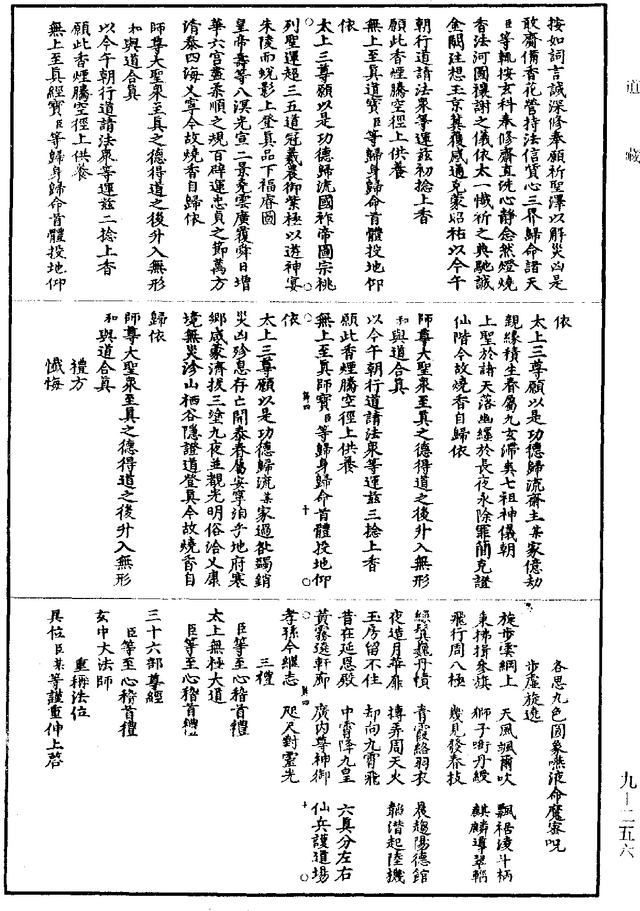 道藏
按如詞言誠深修奉願祈聖澤以解災凶是
敢齋備香花營持法信質心三界歸命諸天
臣等輒按玄科奉修齋直洗心靜念然燈燒
香法河圖禳謝之儀依太一懺祈之典馳誠
金闕注想玉京冀獲感通克蒙昭祐以今午
朝行道請法衆等運茲初捻上香
願此香煙騰空徑上供養
無上至真道寶臣等歸身歸命首體投地仰
依
太上三尊願以是功德歸流國祚帝圖宗祧
列聖運超三五道冠羲農御紫極以遊神宴
朱陵而蛻影上登真品下福睿圖
皇帝壽等八溟光宣二景堯雲廣覆舜日增
華六宮盡柔順之規百辟運忠貞之節萬方
清泰四海乂寧今故燒香自歸依
師尊大聖衆至真之德得道之後升入無形
和與道合真
以今午朝行道請法衆等運茲二捻上香
願此香煙騰空徑上供養
無上至真經寶臣等歸身歸命首體投地仰
依
太上三尊願以是功德歸流齋主某家億劫
親緣積生眷屬九玄滯爽七祖神儀朝
上聖於諸天落幽纏於長夜永除罪簡克證
仙階今故燒香自歸依
師尊大聖衆至真之德得道之後升入無形
和與道合真
以今午朝行道請法衆等運茲三捻上香
願此香煙騰空徑上供養
無上至真師寶臣等歸身歸命首體投地仰
依
太上三尊願以是功德歸流某家過咎蠲銷
災凶殄息存亡開泰眷屬安寧洎乎地府寒
鄉咸蒙濟拔三塗九夜並覩光明俗洽乂康
境無災沴山栖谷隱證道登真今故燒香自
歸依
師尊大聖衆至真之德得道之後升入無形
和與道合真
禮方
懺悔
各思九色圓象嚥液命魔密呪
步虛旋遶
旋步雲綱上　天風颯爾吹　飄裾淩斗柄
秉拂揖參旗　獅子銜丹綬　麒麟導翠輜
飛行周八極　幾見發春枝
總髮巍丹幘　青霞絡羽衣　晨趨陽德館
夜造月華扉　搏弄周天火　韜潛起陸機
玉房留不住　却向九霄飛
昔在延恩殿　中宵降九皇　六真分左右
黃霧遶軒廊　廣內尊神御　仙兵護道場
孝孫今繼志　咫尺對靈光
三禮
臣等至心稽首禮
太上無極大道
臣等至心稽首禮
三十六部尊經
臣等至心稽首禮
玄中大法師
重稱法位
具位臣某等謹重伸上啓
第四　十
第四　十
九―二五六